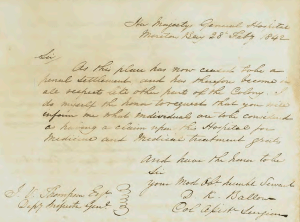 Her Majesty General Hospital
Moreton Bay 28 Feby 1842
Sir
As this place has now ceased to be a
penal settlement and has therefore become in
all respects like other part of the Colony. I
do myself the honor to request that you will
inform me what Individuals are to be considered
as having a claim upon the Hospital for
Medicine and Medical treatment gratis.
And have the honor to be
Sir
your Most Obt humble Servant
K. Ballow
Col. Asst Surgeon
J. Thompson Esqr
Depy Inspector Genl